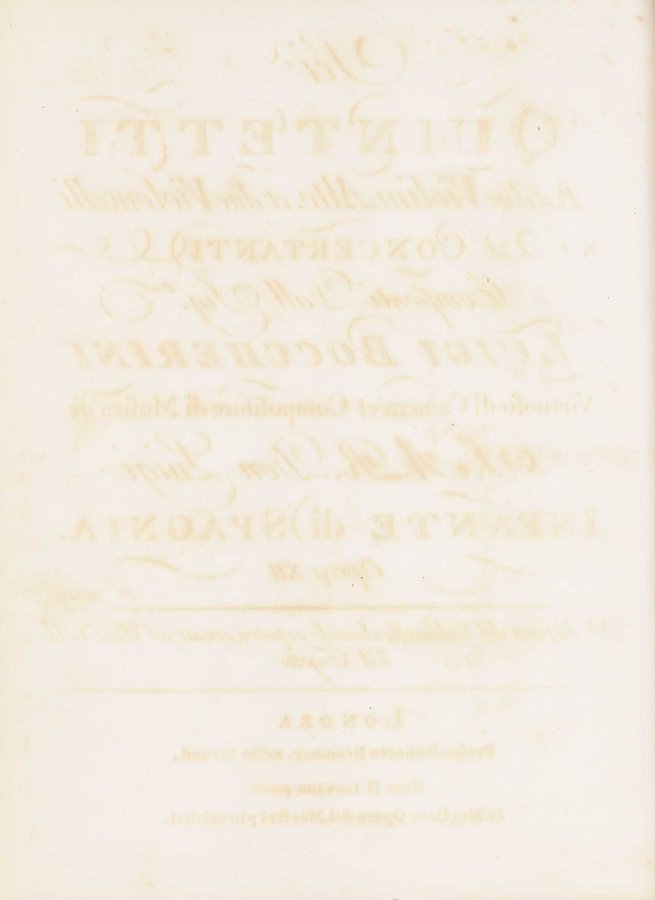 Sei
QUINTETTI
Per due Violini, Alto, et due Violoncelli
CONCERTANTI
Composti Dall Sigr.
LUIGI BOCCHERINI
Virtuoso di Camera et Compositore di Musica di
S. A. R. Don Luigi
INFANTE di SPAGNIA.
Opera XII
del Violoncello
LONDRA
Presso Roberto Bremner. nello Strand,
dove si trovano pure
le Megliore Opere dei Maestri piu celebri.